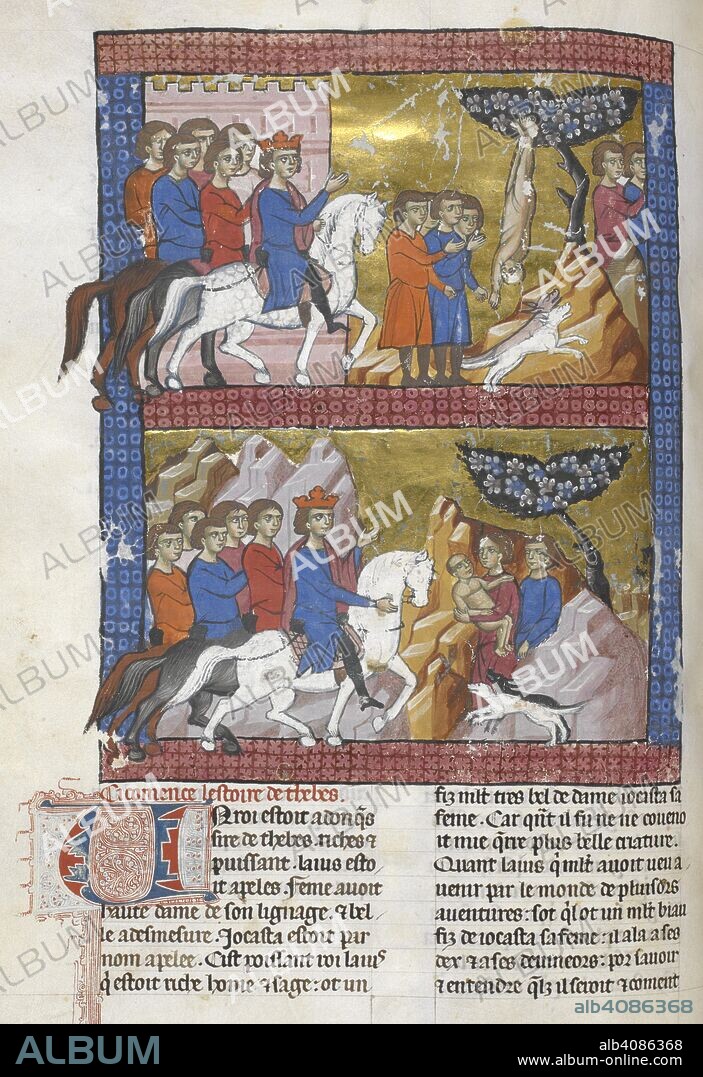 Ci comence lestoire de thebes.
Un roi estoit adonq̄s
sire de thebes. riches ⁊
puissant. laius esto
it apeles. feme auoit
haute dame de son lignage. ⁊ bel
le a desmesure. Jocasta estoit par
nom apelee. Cist poissant roi laiuˢ
q̄ estoit riche home ⁊ sage: ot un
fiz ml't tres bel de dame iocasta sa
feme. Car
plus belle criature.
Quant laius q̄ ml't auoit veu a
uenir par le monde de plusors
auentures: sot q̄l ot un ml't biau
fiz de iocasta sa feme: il ala a ses
dex ⁊ a ses deuineors: por sauoir
⁊ entendre q̄lz il seroit ⁊ coment
alb4086368
ALBUM
alb4086368
www.album-online.com